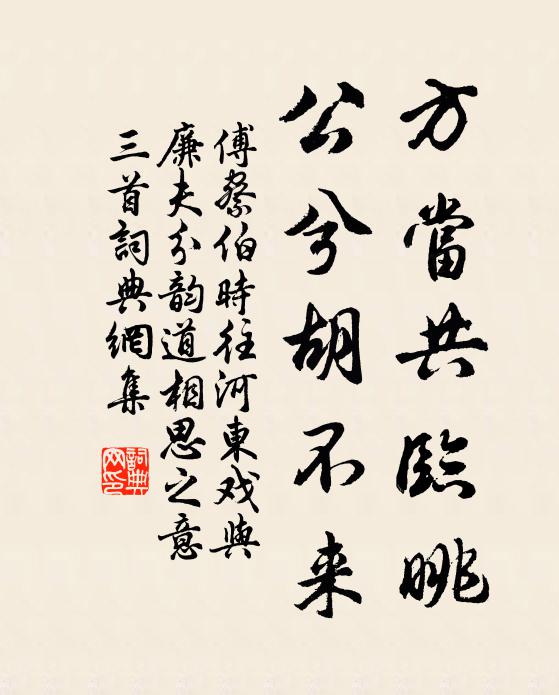 方當共臨眺
公兮胡不来
傅蔡伯時往河東戏與
廉夫分韵道相思之意
三首詞典網集
詞典网印